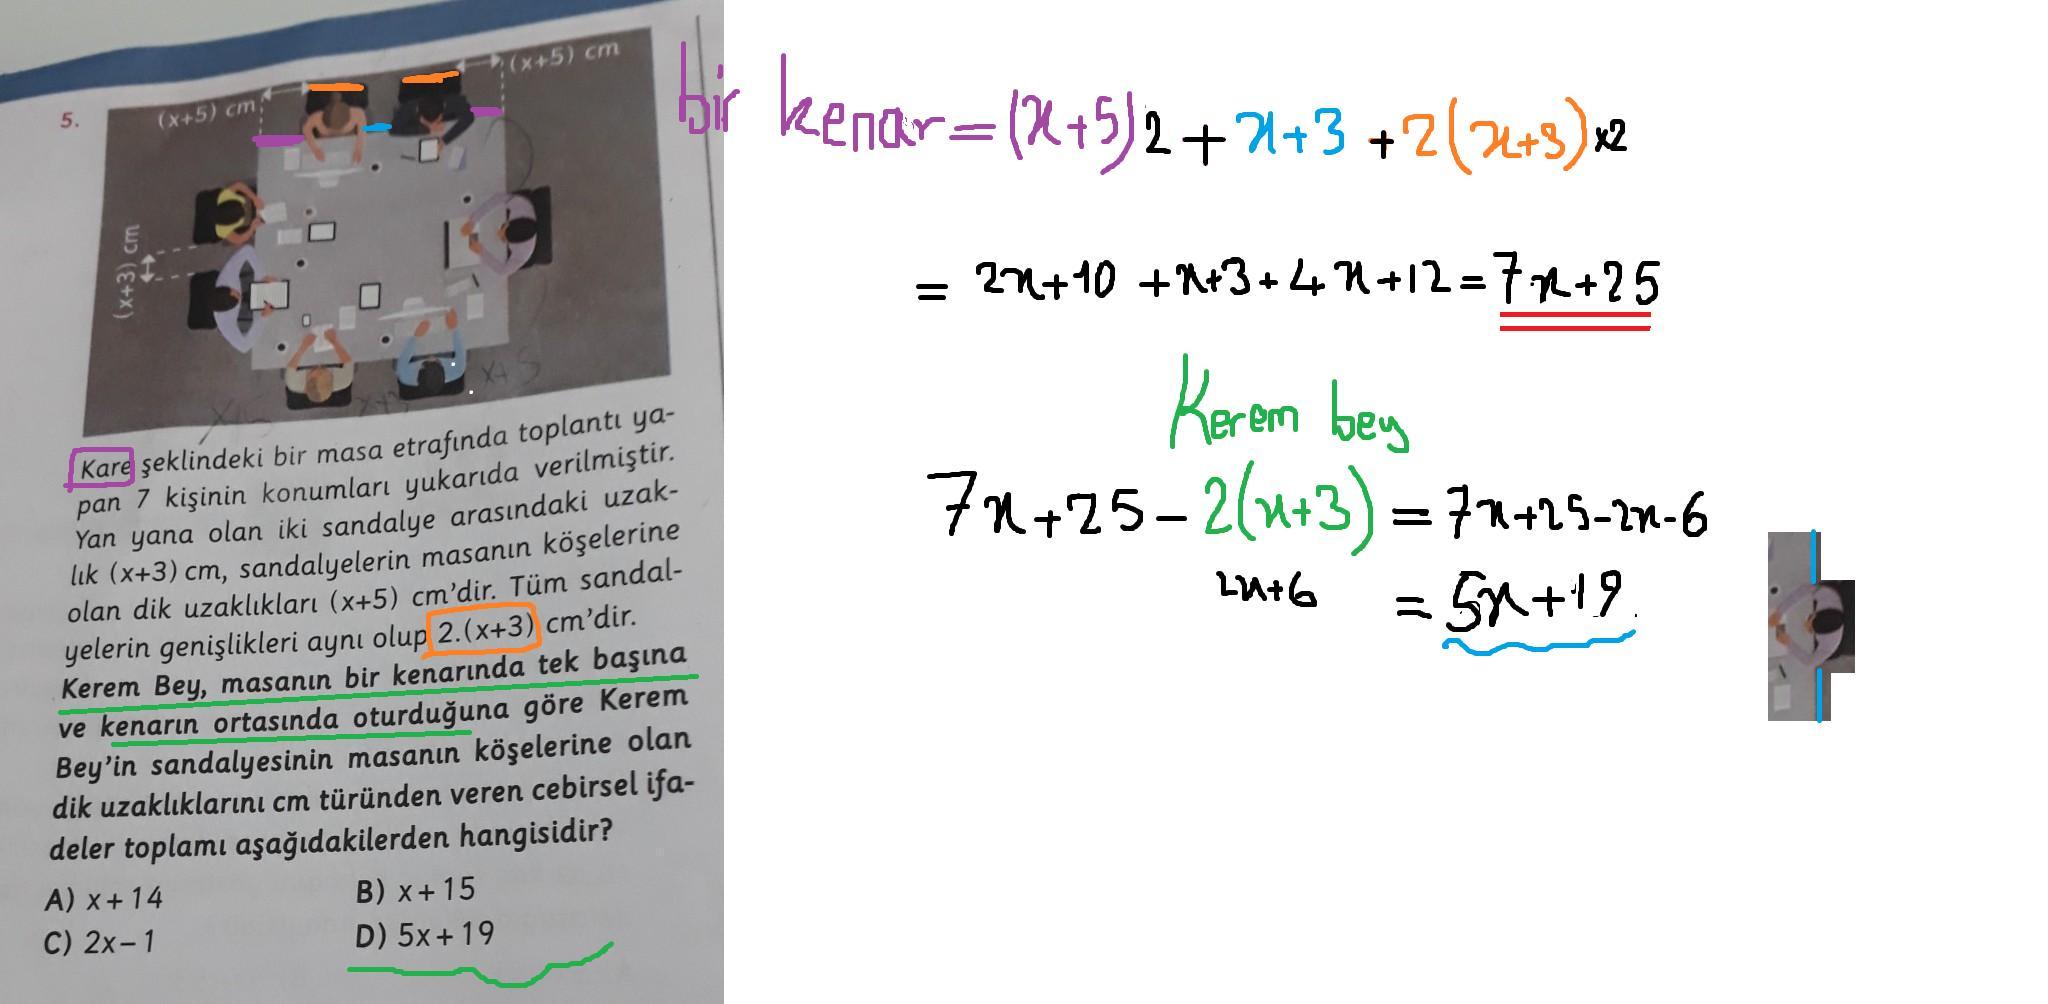 5.
(x+5) cm
(x+5) cm
(x+3) cm
x+5
x+3
x+5
Kare şeklindeki bir masa etrafında toplantı ya-
pan 7 kişinin konumları yukarıda verilmiştir.
Yan yana olan iki sandalye arasındaki uzak-
lık (x+3) cm, sandalyelerin masanın köşelerine
olan dik uzaklıkları (x+5) cm'dir. Tüm sandal-
yelerin genişlikleri aynı olup 2.(x+3) cm'dir.
Kerem Bey, masanın bir kenarında tek başına
ve kenarın ortasında oturduğuna göre Kerem
Bey'in sandalyesinin masanın köşelerine olan
dik uzaklıklarını cm türünden veren cebirsel ifa-
deler toplamı aşağıdakilerden hangisidir?
A) x+14
B) x+15
C) 2x-1
D) 5x+19
bir kenar=(x+5)2+x+3+2(x+3)x2
= 2x+10 +x+3+4x+12=7x+25
Kerem bey
7x+25-2(x+3)=7x+25-2x-6
2x+6 =5x+19